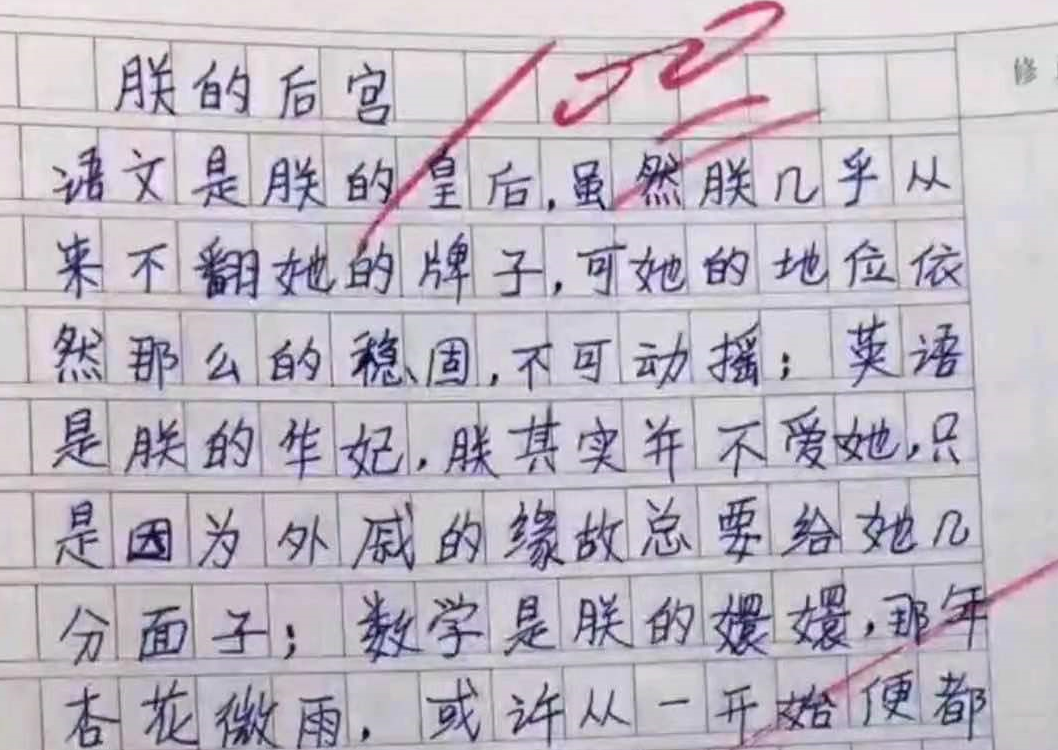 朕的后宫
修
语文是朕的皇后,虽然朕几乎从
来不翻她的牌子,可她的地位依
然那么的稳固,不可动摇;英语
是朕的华妃,朕其实并不爱她,只
是因为外戚的缘故总要给她几
分面子;数学是朕的嬛嬛,那年
杏花微雨,或许从一开始便都